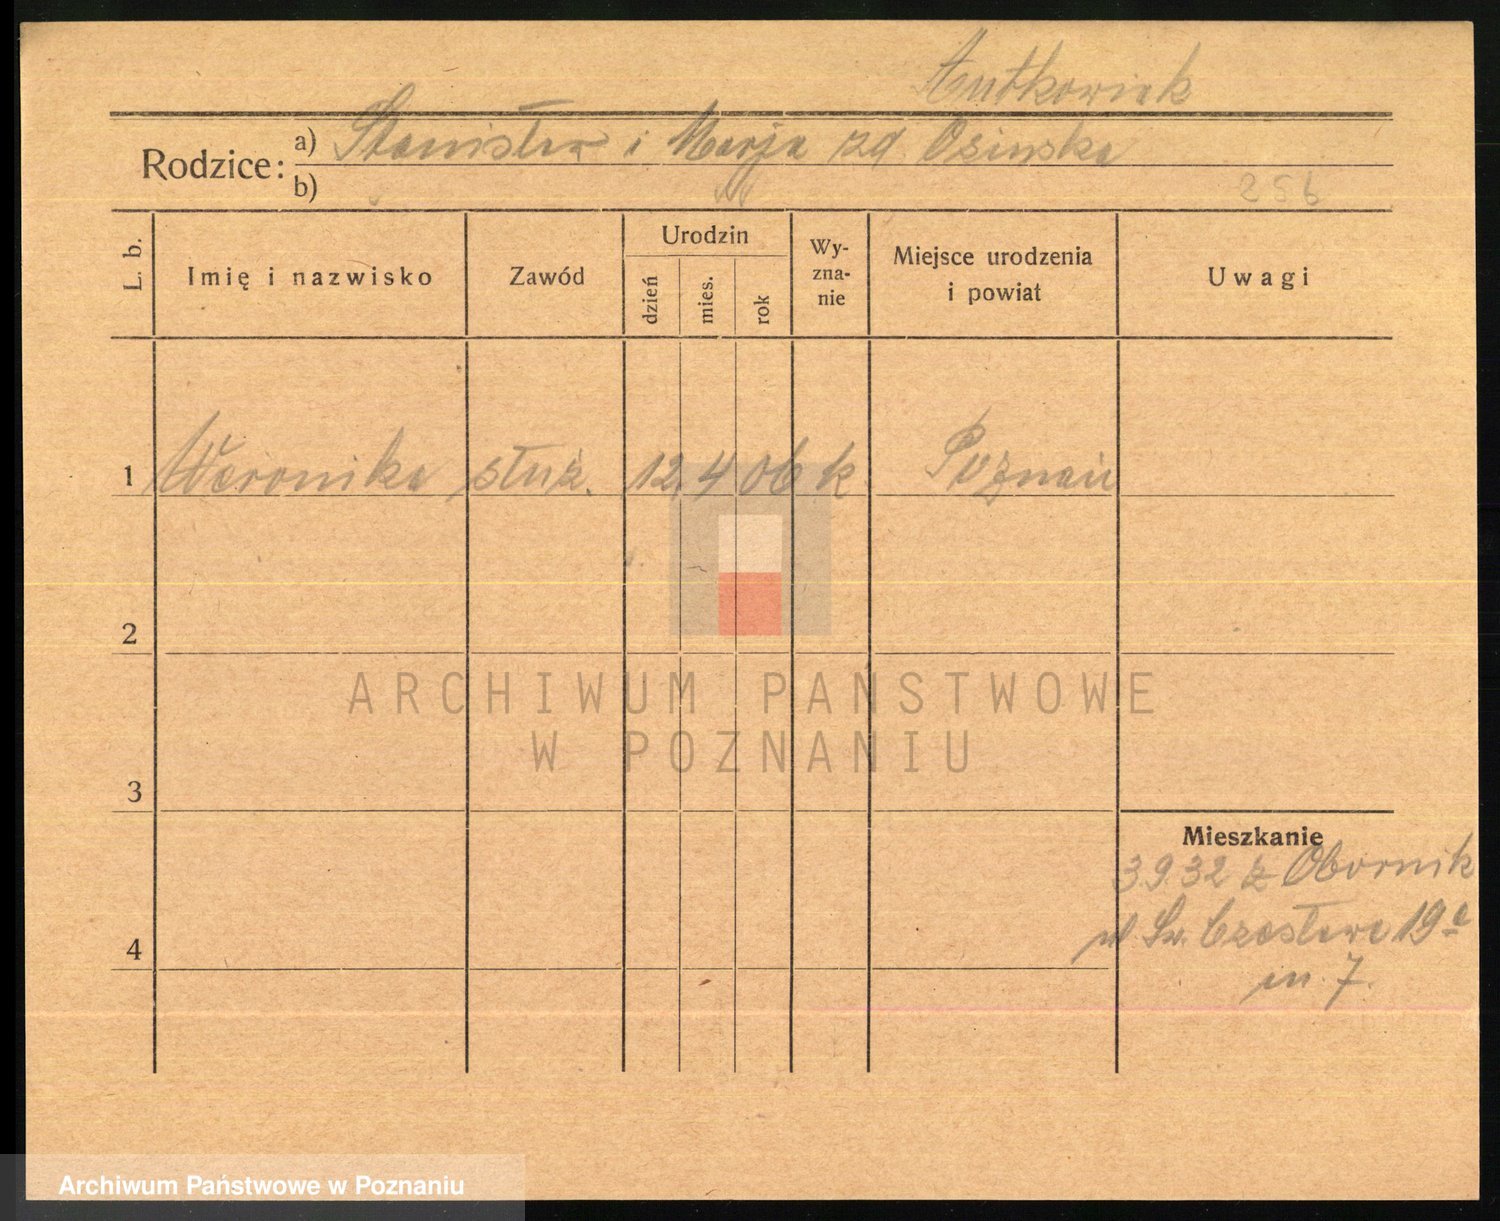 Antkowiak
Rodzice: a) Stanisław i Marja zd Osinska
b)
256
L. b. Imię i nazwisko Zawód Urodzin dzień mies. rok Wy-zna-nie Miejsce urodzenia i powiat Uwagi
1 Weronika służ. 12 4 06 k Poznań
2
ARCHIWUM PAŃSTWOWE
W POZNANIU
3
Mieszkanie
3.9.32 z Obornik
ul. Św. Czesława 19a
4
m. 7.
Archiwum Państwowe w Poznaniu